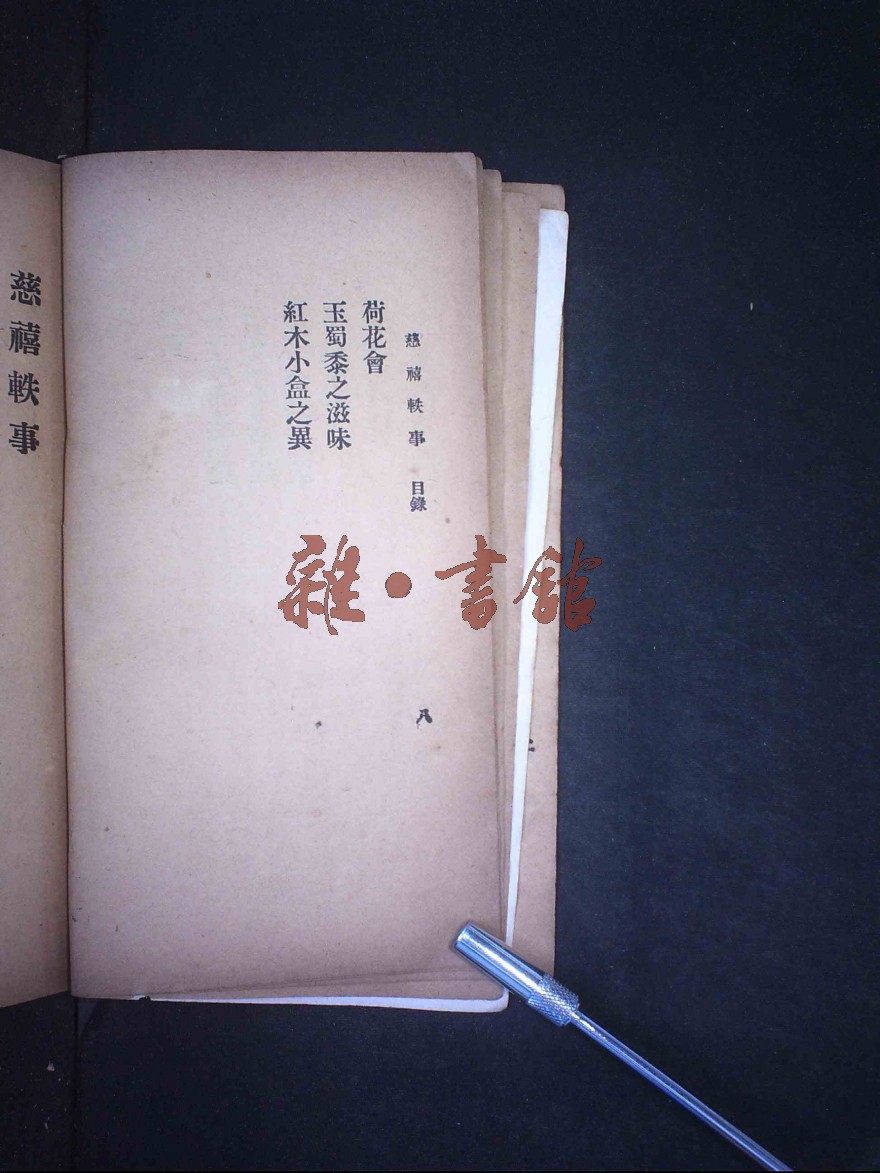 慈禧軼事 目錄
荷花會
玉蜀黍之滋味
紅木小盒之異
八
慈禧軼事
雜·書館
二